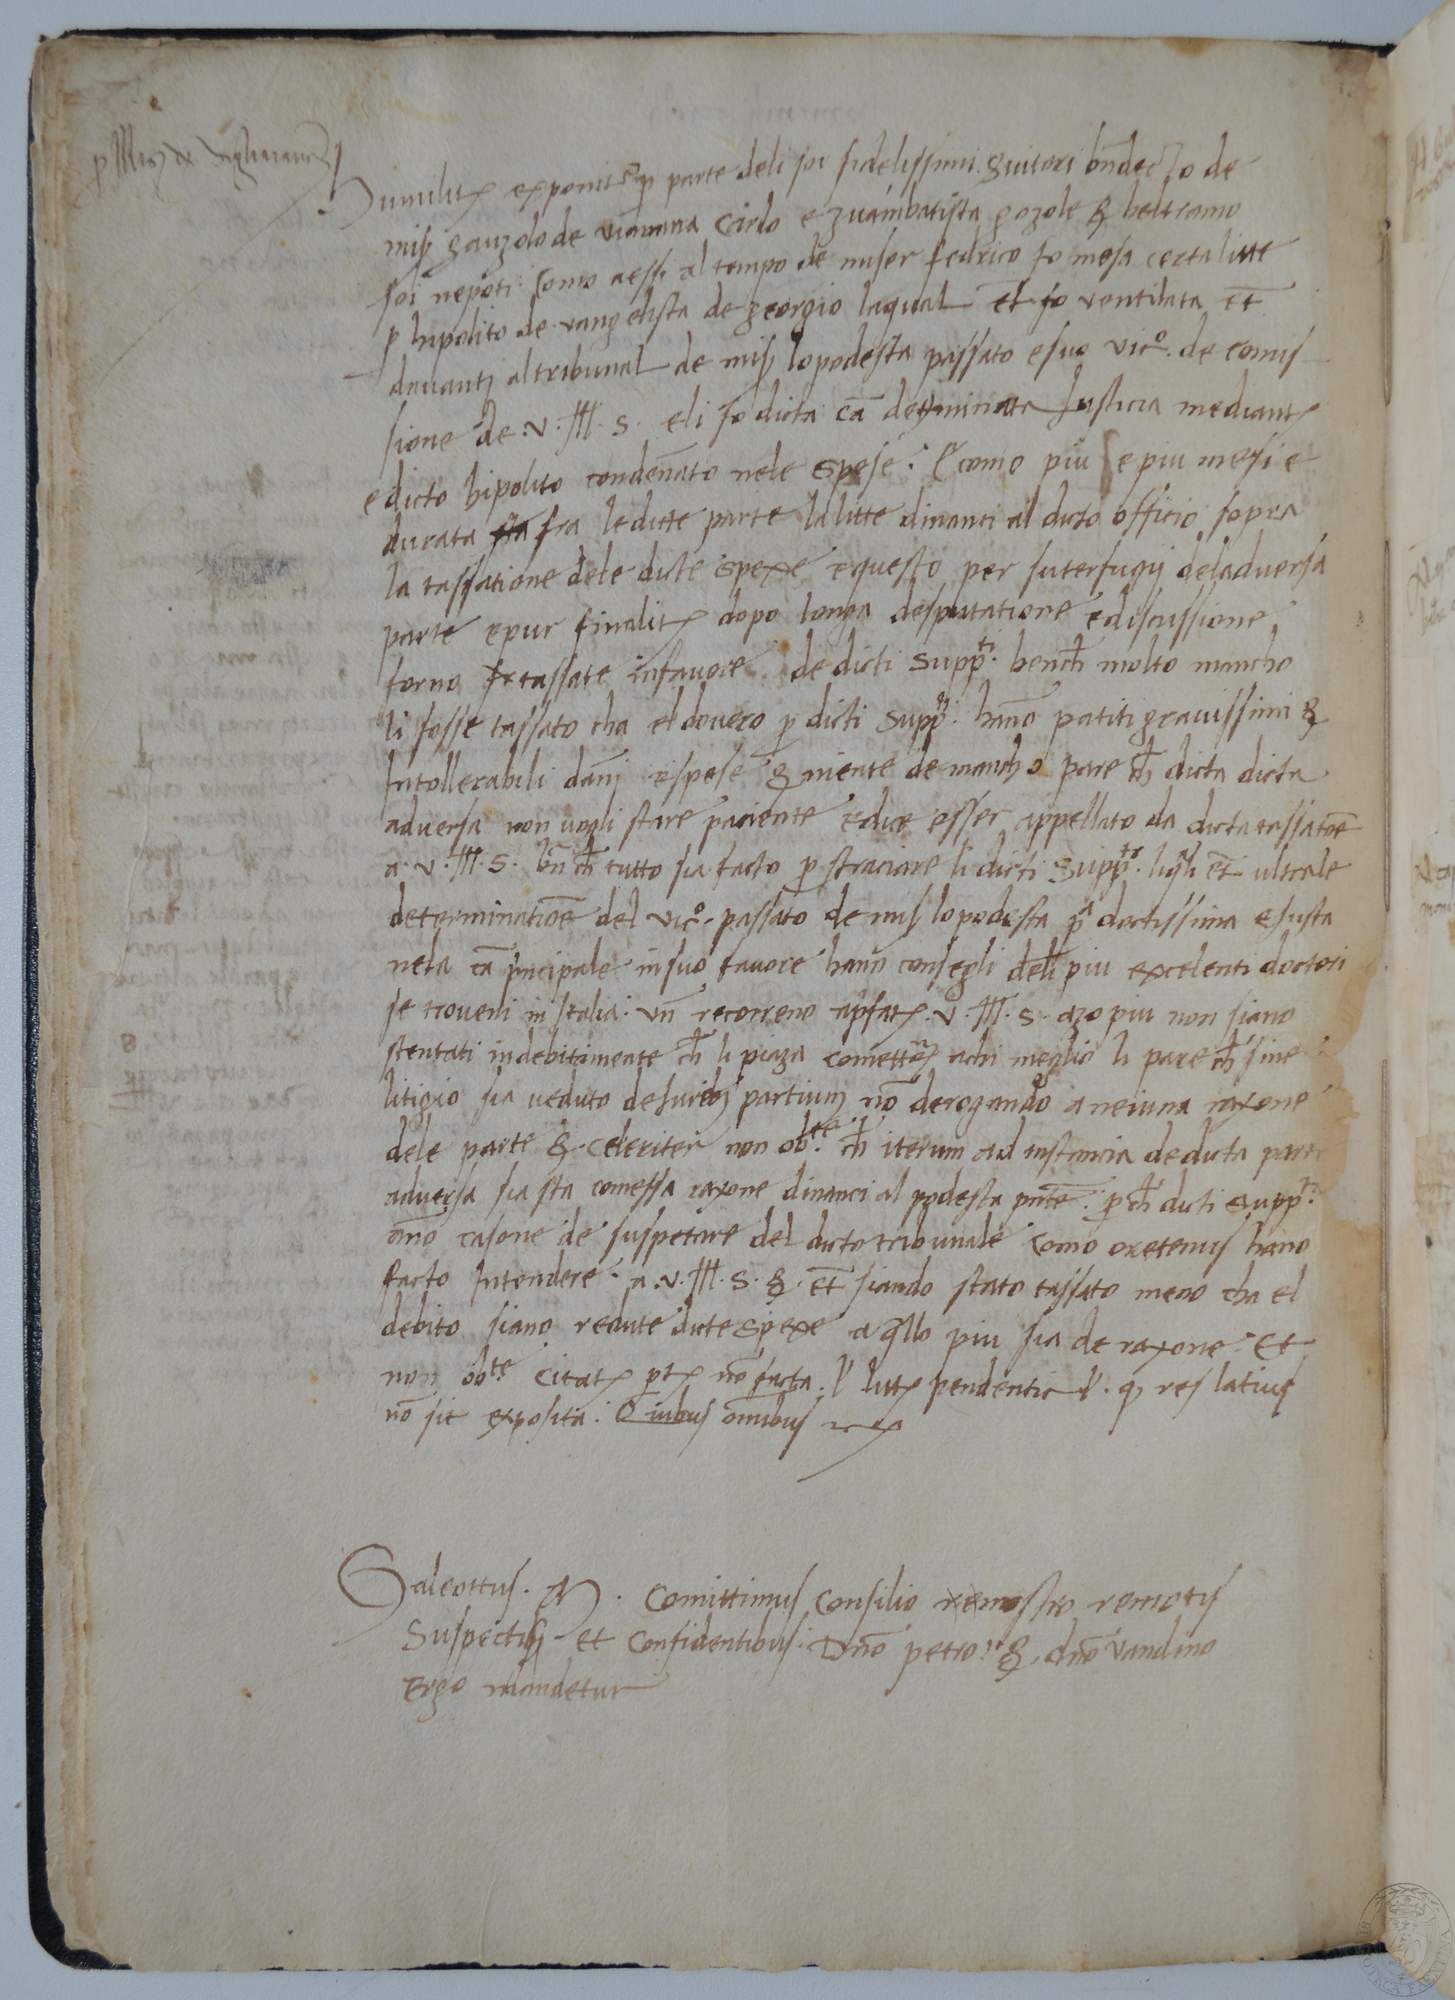 Humilit exponit p parte deli soi fidelissimi de
misr de viamana Carlo e zuambatista gozole & beltramo
soi nepoti como al tempo de miser fedrico fo mesa certa litte
p hipolito de vangelista de georgio laqual et fo ventilata et
davanti al tribunal de misr lo podesta passato e suo vico. de comis
sione de .v. Ill. s. e li fo dicta ca determinata Justicia mediant
e dicto hipolito condenato nele spese. como piu e piu mesi e
durata fra le dicte parte la litte dinanti al dicto officio sopra
la tassatione dele dicte spexe e questo per suterfugij deladversa
parte e pur finalit dopo longa desputatione e discussione
forno tassate in favore de dicti suppti. bench molto mancho
li fosse tassato cha el dovero p dicti suppti. hano patiti gravissimi &
Intollerabili danj e spese & niente de mancho pare ch dicta dicta
adversa non vogli stare paciente e dice esser appellato da dicta tassatoe
a .v. Ill. s. bn ch tutto sia facto p straciare li dicti suppti. liqli et ultrale
determinatioe del vico. passato de misr lo podesta doctissima e Justa
nela ca principale in suo favore hano consegli deli piu excelenti doctori
se troveni in italia. vn recorreno .v. Ill. s. azo piu non siano
stentati indebitamente ch li piaza comettere achi meglio li pare ch sine
litigio sia veduto de Juribus partium no derogando a neiuna raxone
dele parte & celeriter non obte. ch iterum ad instancia de dicta parte
adversa sia sta comessa raxone dinanci al podesta pnte. p ch dicti suppti.
ano casone de suspetare del dicto tribunale como oretenus hano
facto Intendere a .v. Ill. s. & et siando stato tassato meno cha el
debito siano redute dicte spexe a qllo piu sia de raxone. Et
non obte. Citat no facta. l litt pendentia q res latius
no sit exposita. Quibus omibus

Galeottus. M. Comittimus Consilio nostro remotis
Suspectis et Confidentibus. Dno petro. & dno vandino
Ergo mandetur